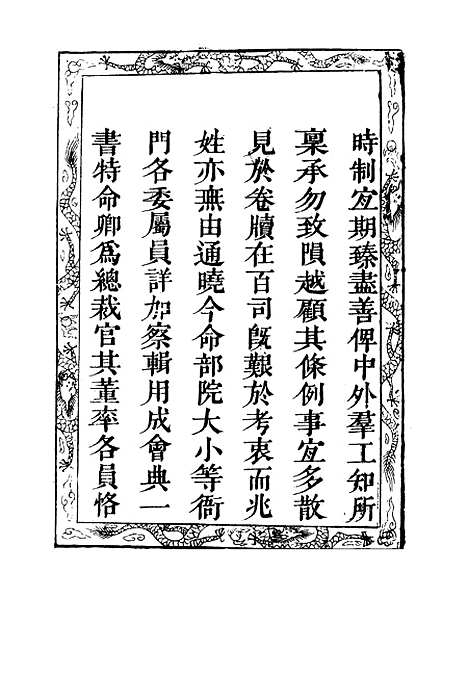 時制宜期臻盡善俾中外羣工知所
稟承勿致隕越顧其條例事宜多散
見於卷牘在百司旣艱於考衷而兆
姓亦無由通曉今命部院大小等衙
門各委屬員詳加察輯用成會典一
書特命卿爲總裁官其董率各員恪